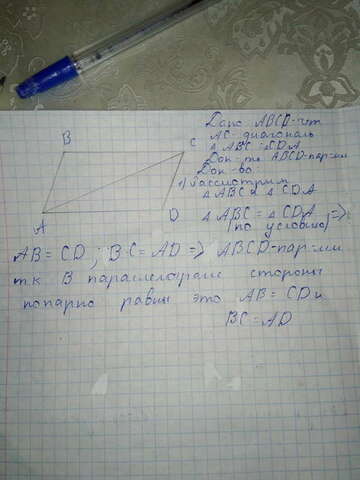 B
C
A
D
Дано ABCD-чет.
AC-диагональ
△ABC=△CDA
Док-ть ABCD-пар-мм
Док-во:
1) рассмотрим
△ABC и △CDA
△ABC = △CDA =>
(по условию)
AB=CD; BC=AD => ABCD-пар-мм
т.к. В параллелограме стороны
попарно равны это AB=CD и
BC=AD